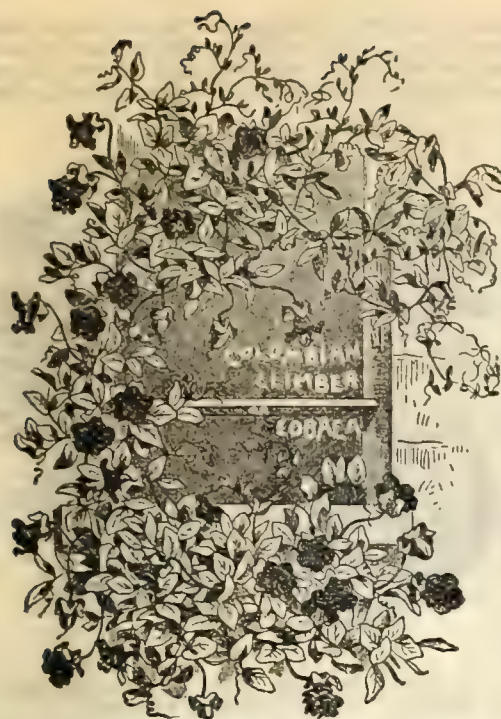 COLUMBIAN
CLIMBER
COBAEA